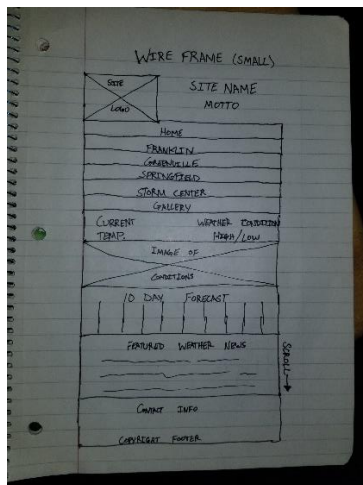 WIRE FRAME (SMALL)
SITE LOGO
SITE NAME
MOTTO
HOME
FRANKLIN
GREENVILLE
SPRINGFIELD
STORM CENTER
GALLERY
CURRENT TEMP.
WEATHER CONDITION
HIGH/LOW
IMAGE OF
CONDITIONS
10 DAY FORECAST
FEATURED WEATHER NEWS
SCROLL
CONTACT INFO
COPYRIGHT FOOTER